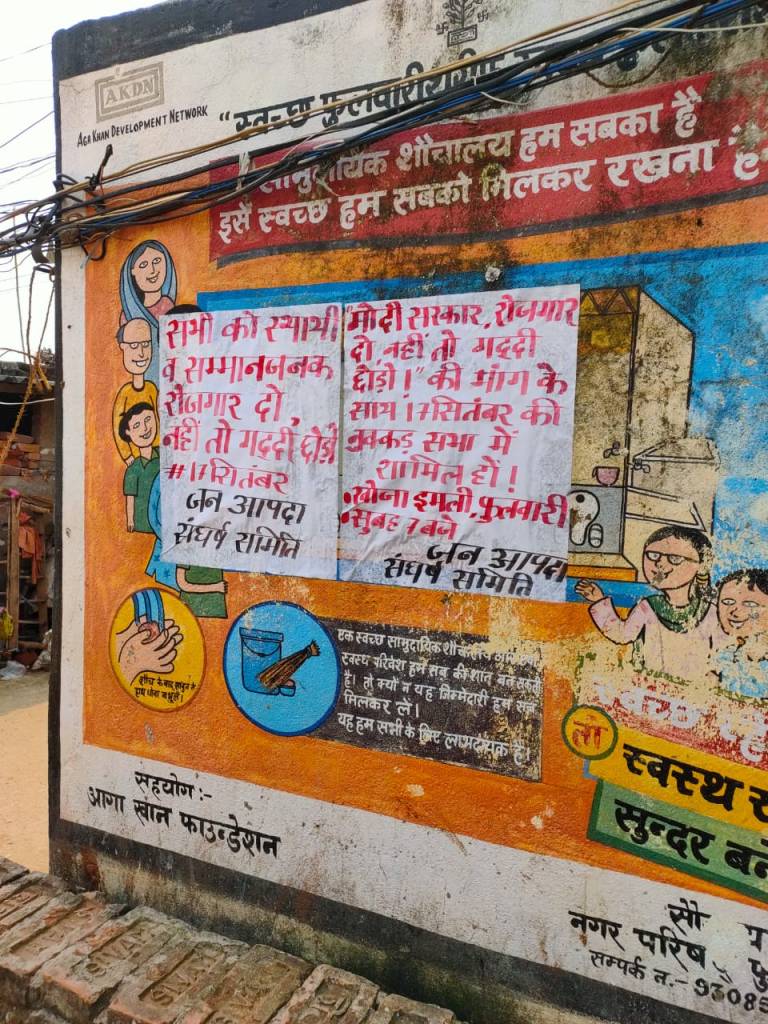 AKDN
AGA KHAN DEVELOPMENT NETWORK
"स्वच्छ फुलवारीशरीफ
सामुदायिक शौचालय हम सबका है
इसे स्वच्छ हम सबको मिलकर रखना है
सभी को स्थायी
व सम्मानजनक
रोजगार दो,
नहीं तो गद्दी छोड़ो
#17सितंबर
जन आपदा
संघर्ष समिति
"मोदी सरकार, रोजगार
दो नहीं तो गद्दी
छोड़ो।" की मांग के
साथ 17सितंबर की
नुक्कड़ सभा में
शामिल हों!
•खोजा इमली, फुलवारी
•सुबह 7 बजे
जन आपदा
संघर्ष समिति
शौच के बाद साबुन से
हाथ धोना न भूलें।
एक स्वच्छ सामुदायिक
स्वस्थ परिवेश हम सब की शान बन सकती
है। तो क्यों न यह जिम्मेदारी हम सब
मिलकर लें।
यह हम सभी के लिए लाभदायक है।
तो
स्वस्थ
सुन्दर
सहयोग :-
आगा खान फाउन्डेशन
सौ
नगर परिष
सम्पर्क न.- 9308